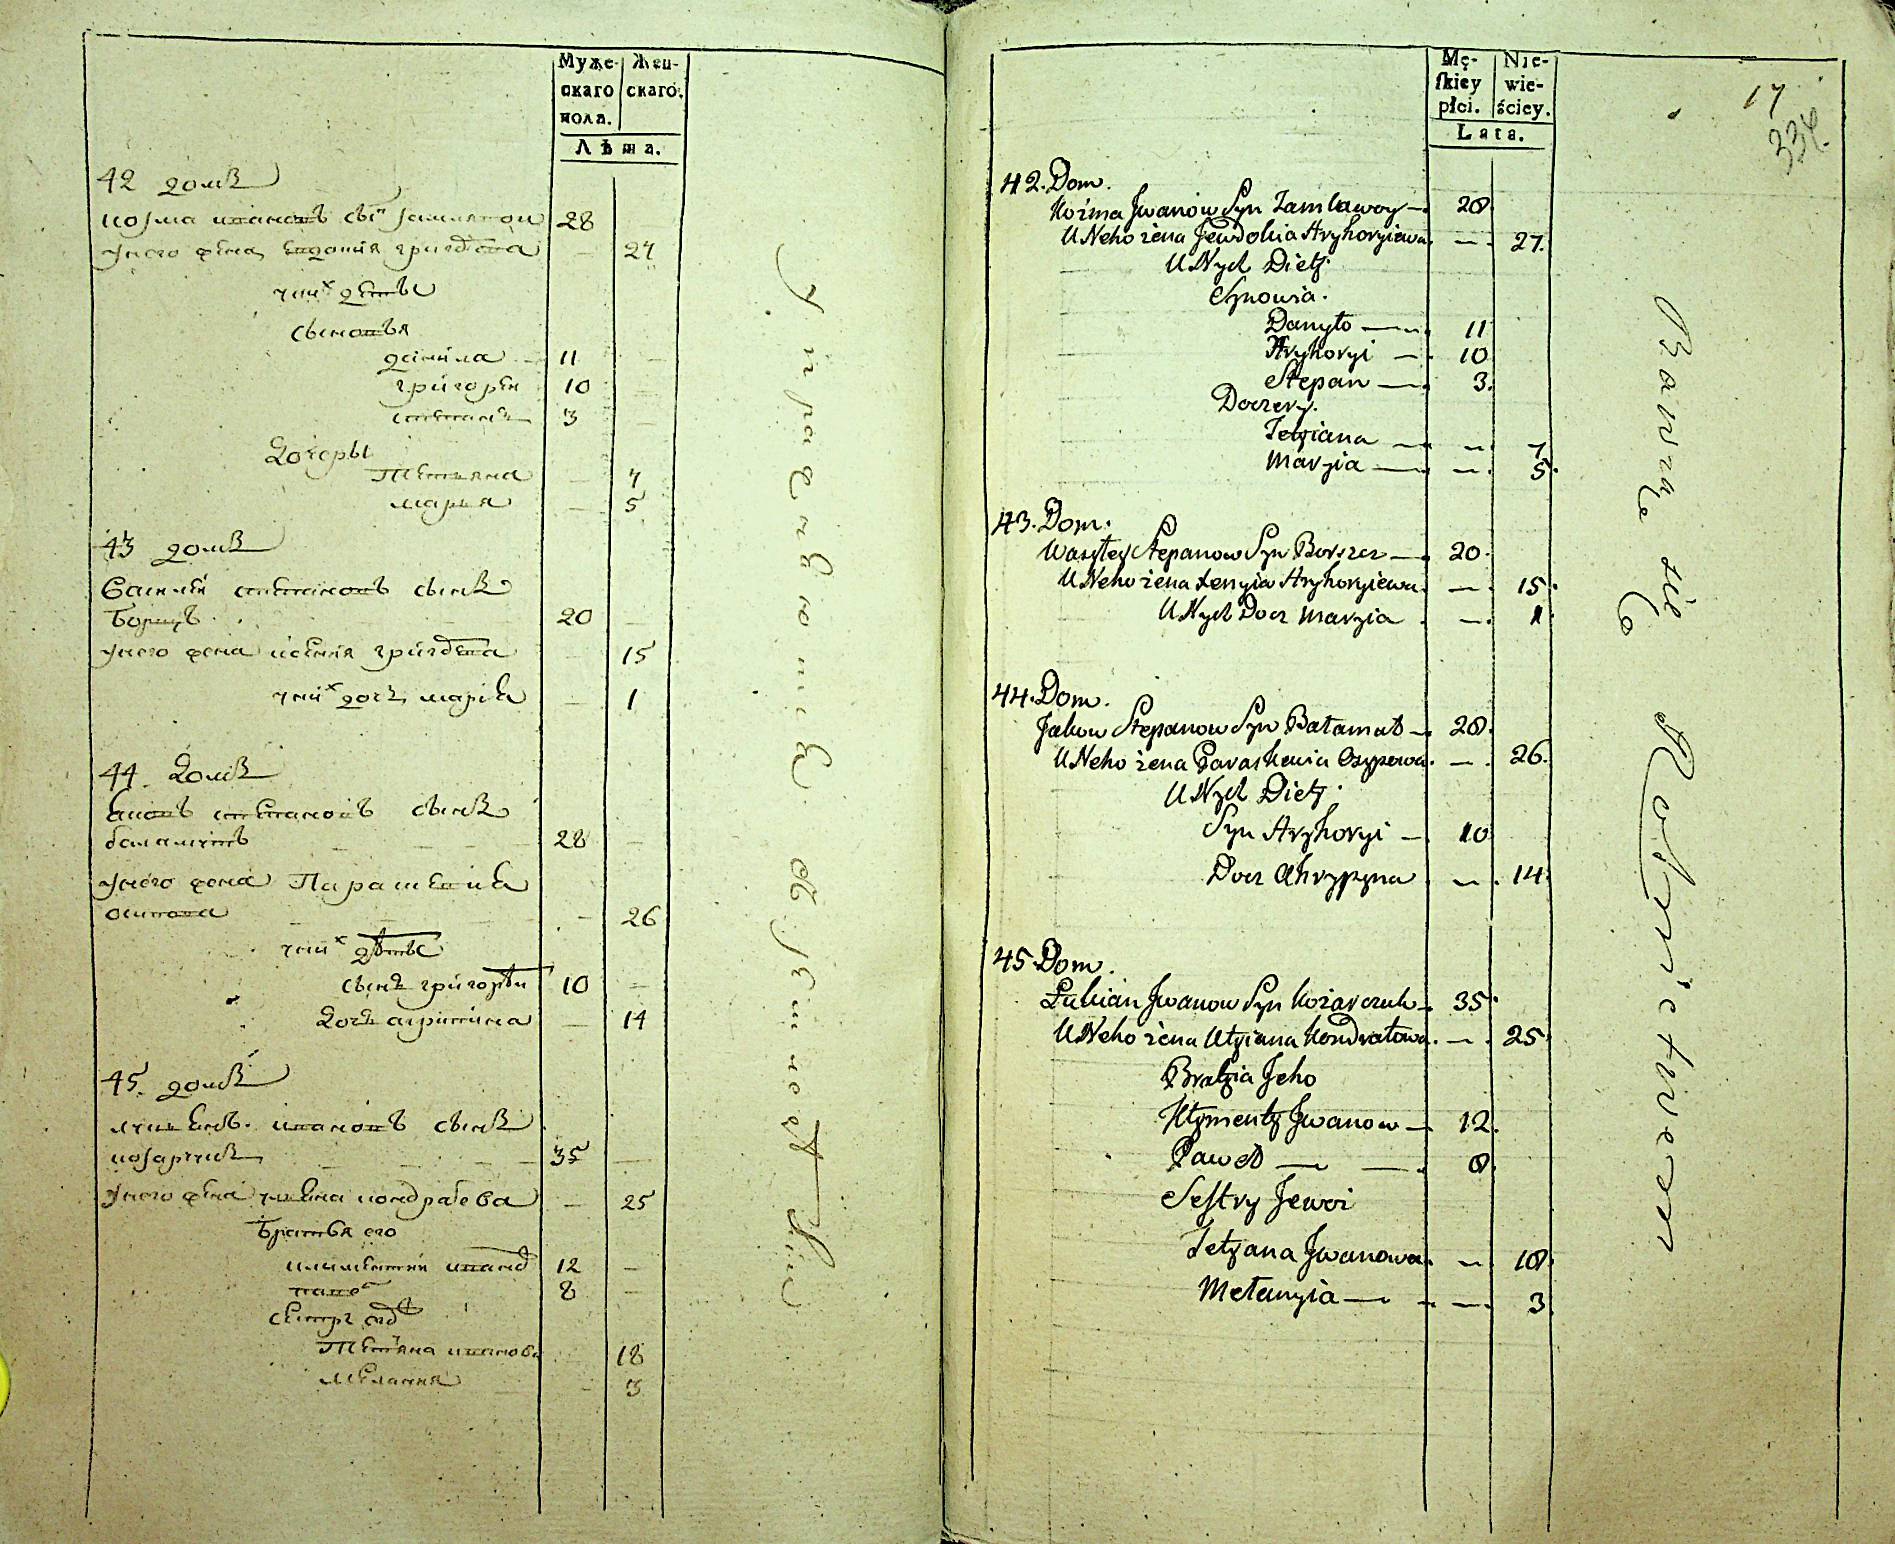 Муже-
скаго
пола.
Жен-
скаго.
Лѣта.
42 домъ
козма ивановъ сынъ
28
у него жена евдокия григорева
27
у них дети
сыновья
данила
11
григореи
10
степанъ
3
дочеры
Тетьяна
7
марья
5
43 домъ
Василей степановъ сынъ
Борщъ
20
у него жена ксения григорева
15
у них дочь мария
1
44. домъ
яковъ степановъ сынъ
баламутъ
28
у него жена Парасковия
осипова
26
у них дети
сынъ григорей
10
дочь агрипина
14
45. домъ
лукьянъ ивановъ сынъ
козарчукъ
35
у него жена улияна кондратева
25
Братья его
климентий иванов
12
павел
8
сестры
Тетяна иванова
18
мелания
3
Упражняется
Mę-
ſkiey
płci.
Nie-
wie-
ściey.
Lata.
17
334.
42. Dom.
Kozma Jwanow Syn 28.
U Neho żena Jewdokia Hryhoryiewa. 27.
U Nych Diety
Synowia.
Danyło 11
Hryhoryi 10
Stepan 3.
Doczery.
Tetyiana 7
Maryia 5.
43. Dom.
Wasyley Stepanow Syn Borszcz 20.
U Neho żena Xenyia Hryhoryiewa. 15.
U Nych Docz Maryia 1.
44. Dom.
Jakow Stepanow Syn Bałamut 28.
U Neho żena Paraskewia Osypowa. 26.
U Nych Diety.
Syn Hryhoryi 10
Docz Ahrypyna 14.
45. Dom.
Łukian Jwanow Syn Kozarczuk 35.
U Neho żena Ulyiana Kondratowa. 25.
Bratyia Jeho
Klymenty Jwanow 12.
Paweł 8
Sestry Jewo
Tetyana Jwanowa. 18.
Melanyia 3
Bawzą się Rolnictwem